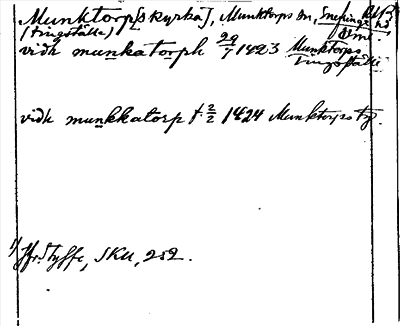 Munktorp[s kyrka], Munktorps sn, Snefringe
(tingställe)
vidh munkatorph 29/7 1423 Munktorps
tingställe
vidh munkkatorp t. 2/2 1424 Munktorps tg.
1) Jfr Styffe, SKU, 252.